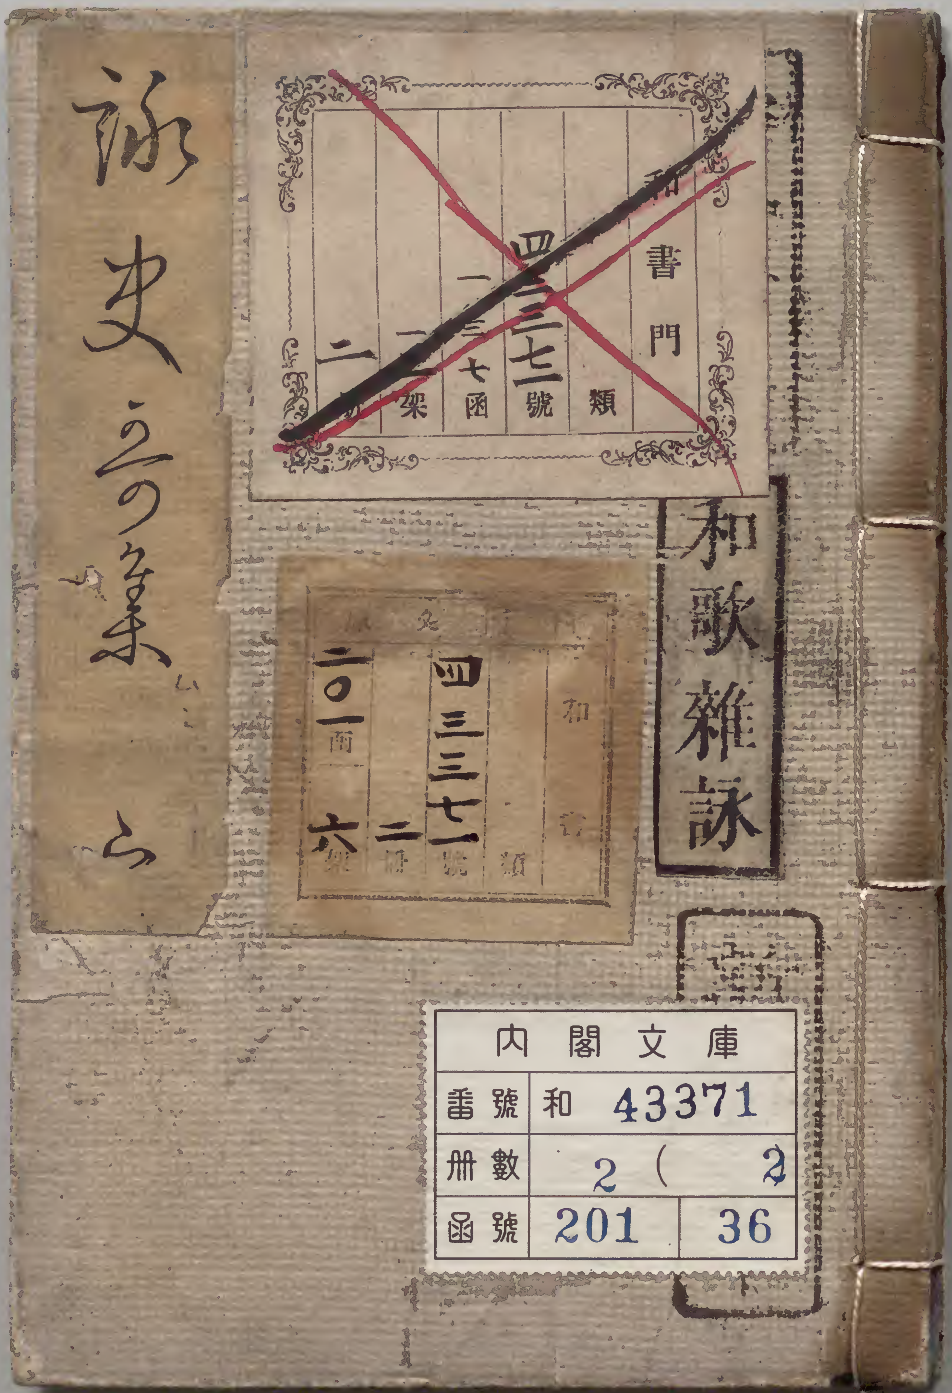 詠史哥集 下
和書門
類
四三三七一號
一三七函
架
二冊
和歌雜詠
和書
類
四三三七一號
二冊
二〇一函
六架
內閣文庫
番號 和 43371
冊數 2 ( 2
函號 201 36